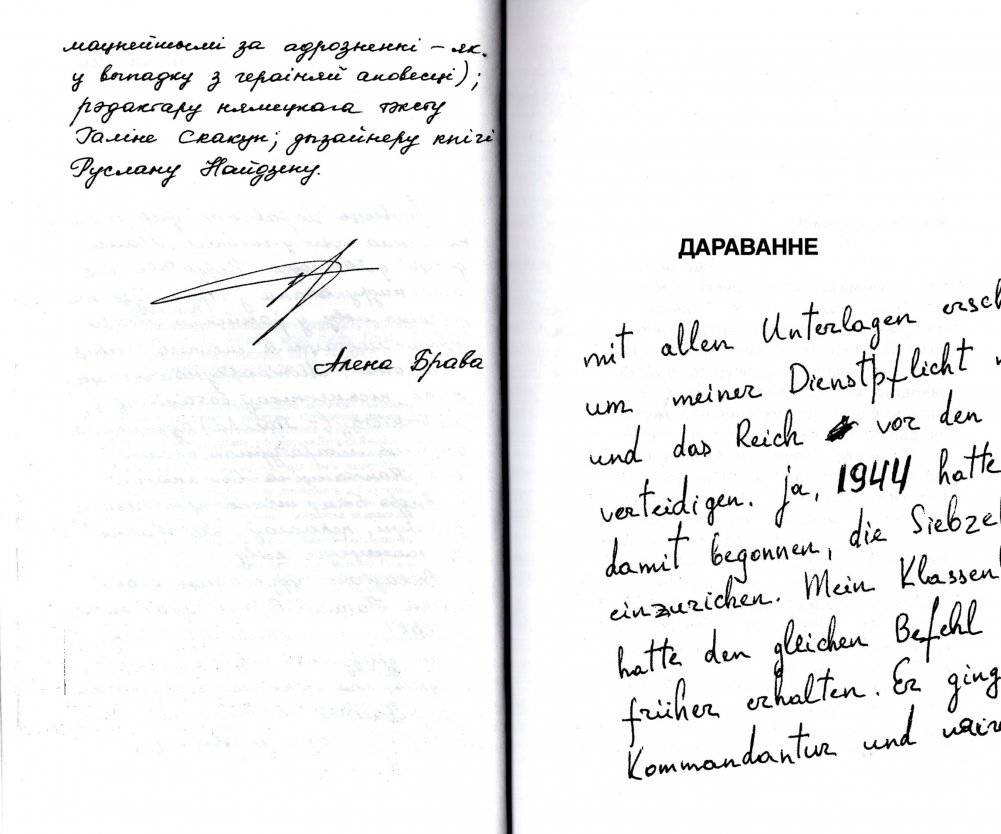 мацнейшымі за адрозненні – як
у выпадку з гераіняй аповесці);
рэдактару нямецкага тэксту
Галіне Скакун; дызайнеру кнігі
Руслану Найдзену.
Алена Брава
ДАРАВАННЕ
mit allen Unterlagen ersch
um meiner Dienstpflicht
und das Reich vor den
verteidigen. Ja, 1944 hatte
damit begonnen, die Siebze
einzurichen. Mein Klassen
hatte den gleichen Befehl
früher erhalten. Er ging
Kommandantur und